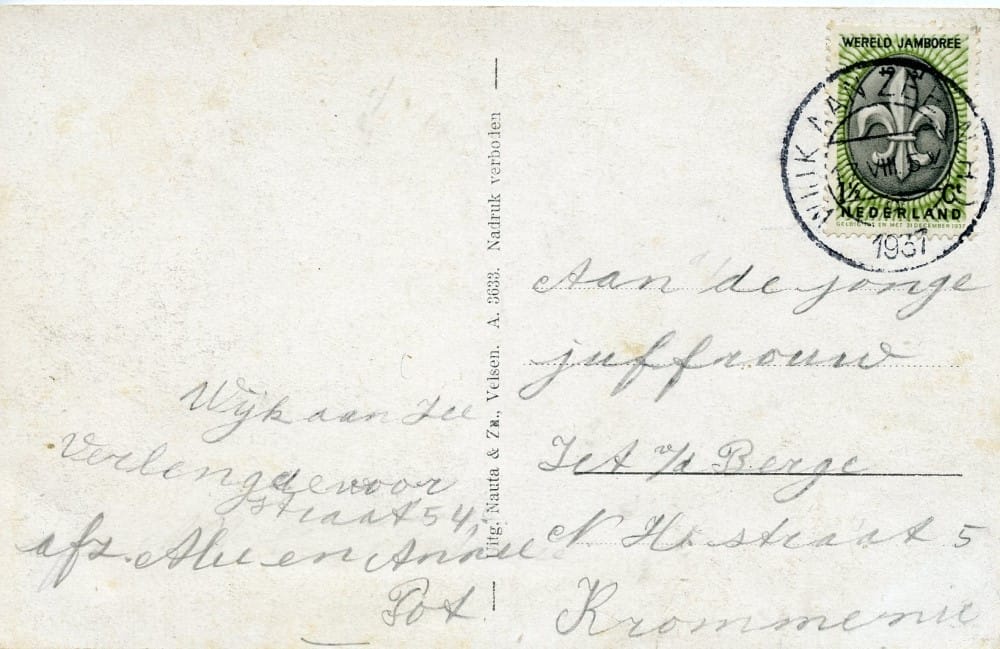 WERELD JAMBOREE
WIJK AAN ZEE
VIII
1½ Ct
NEDERLAND
GELDIG TOT EN MET 31 DECEMBER 1937
1937
Uitg. Nauta & Zn., Velsen. A. 3633. Nadruk verboden
Wijk aan Zee
Verlengdevoor
straat 54
afz. Alie en Annie
Pot
Aan de jonge
juffrouw
Jet v/d Berge
N. Hs. straat 5
Krommenie